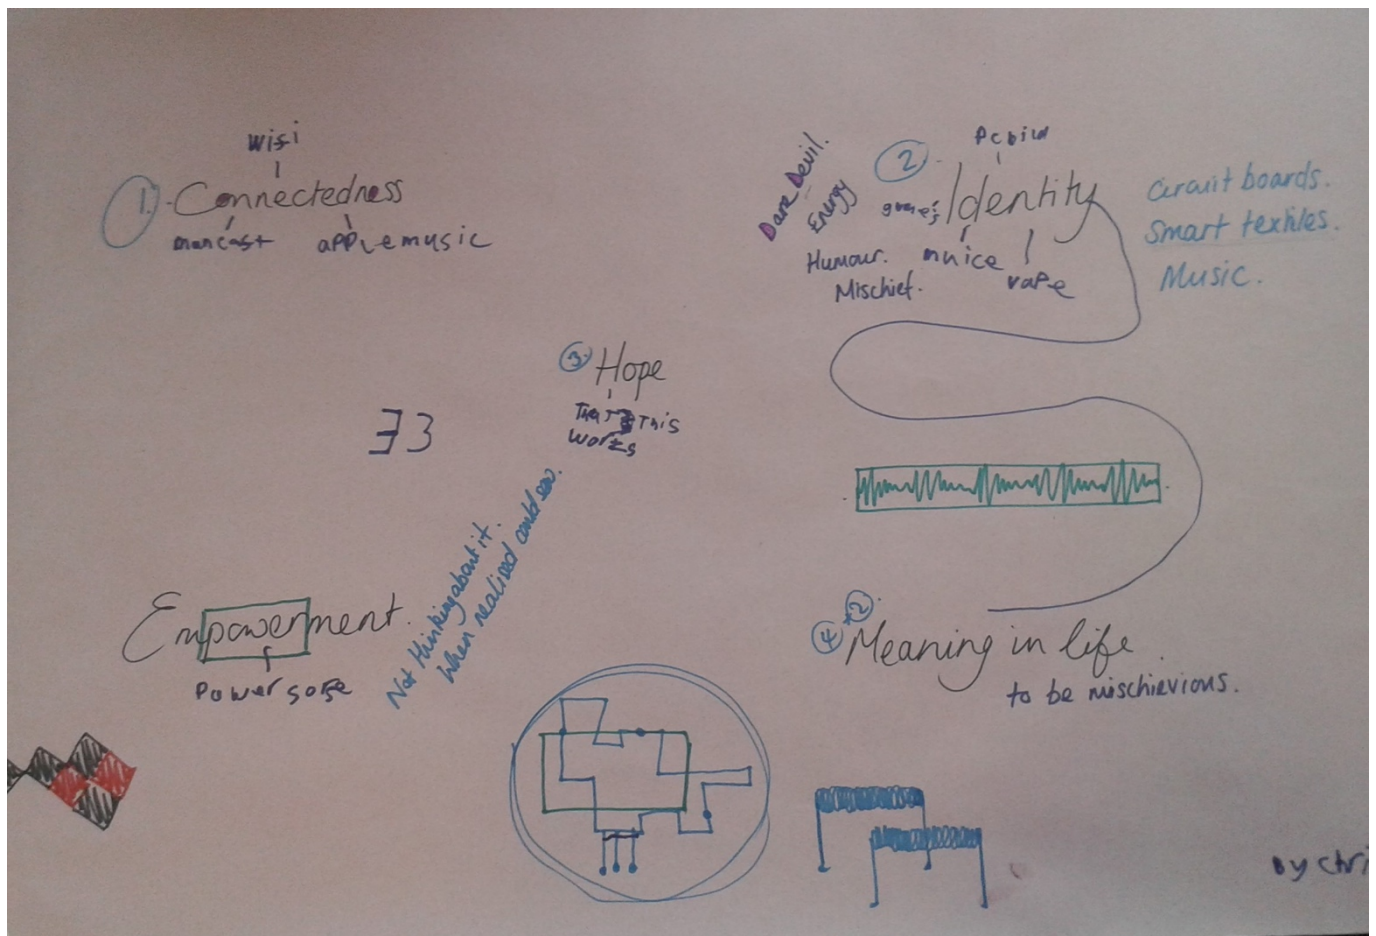 Wifi
1. Connectedness
mancast
applemusic
Dare Devil.
Energy
2
Pcbild
games
Identity
Humour.
Mischief.
muice
vape
Circuit boards.
Smart textiles.
Music.
3. Hope
That This
works
Not thinking about it.
When realised could sew.
Empowerment.
Power sorse
4 + 2
Meaning in life
to be mischievious.
by chri